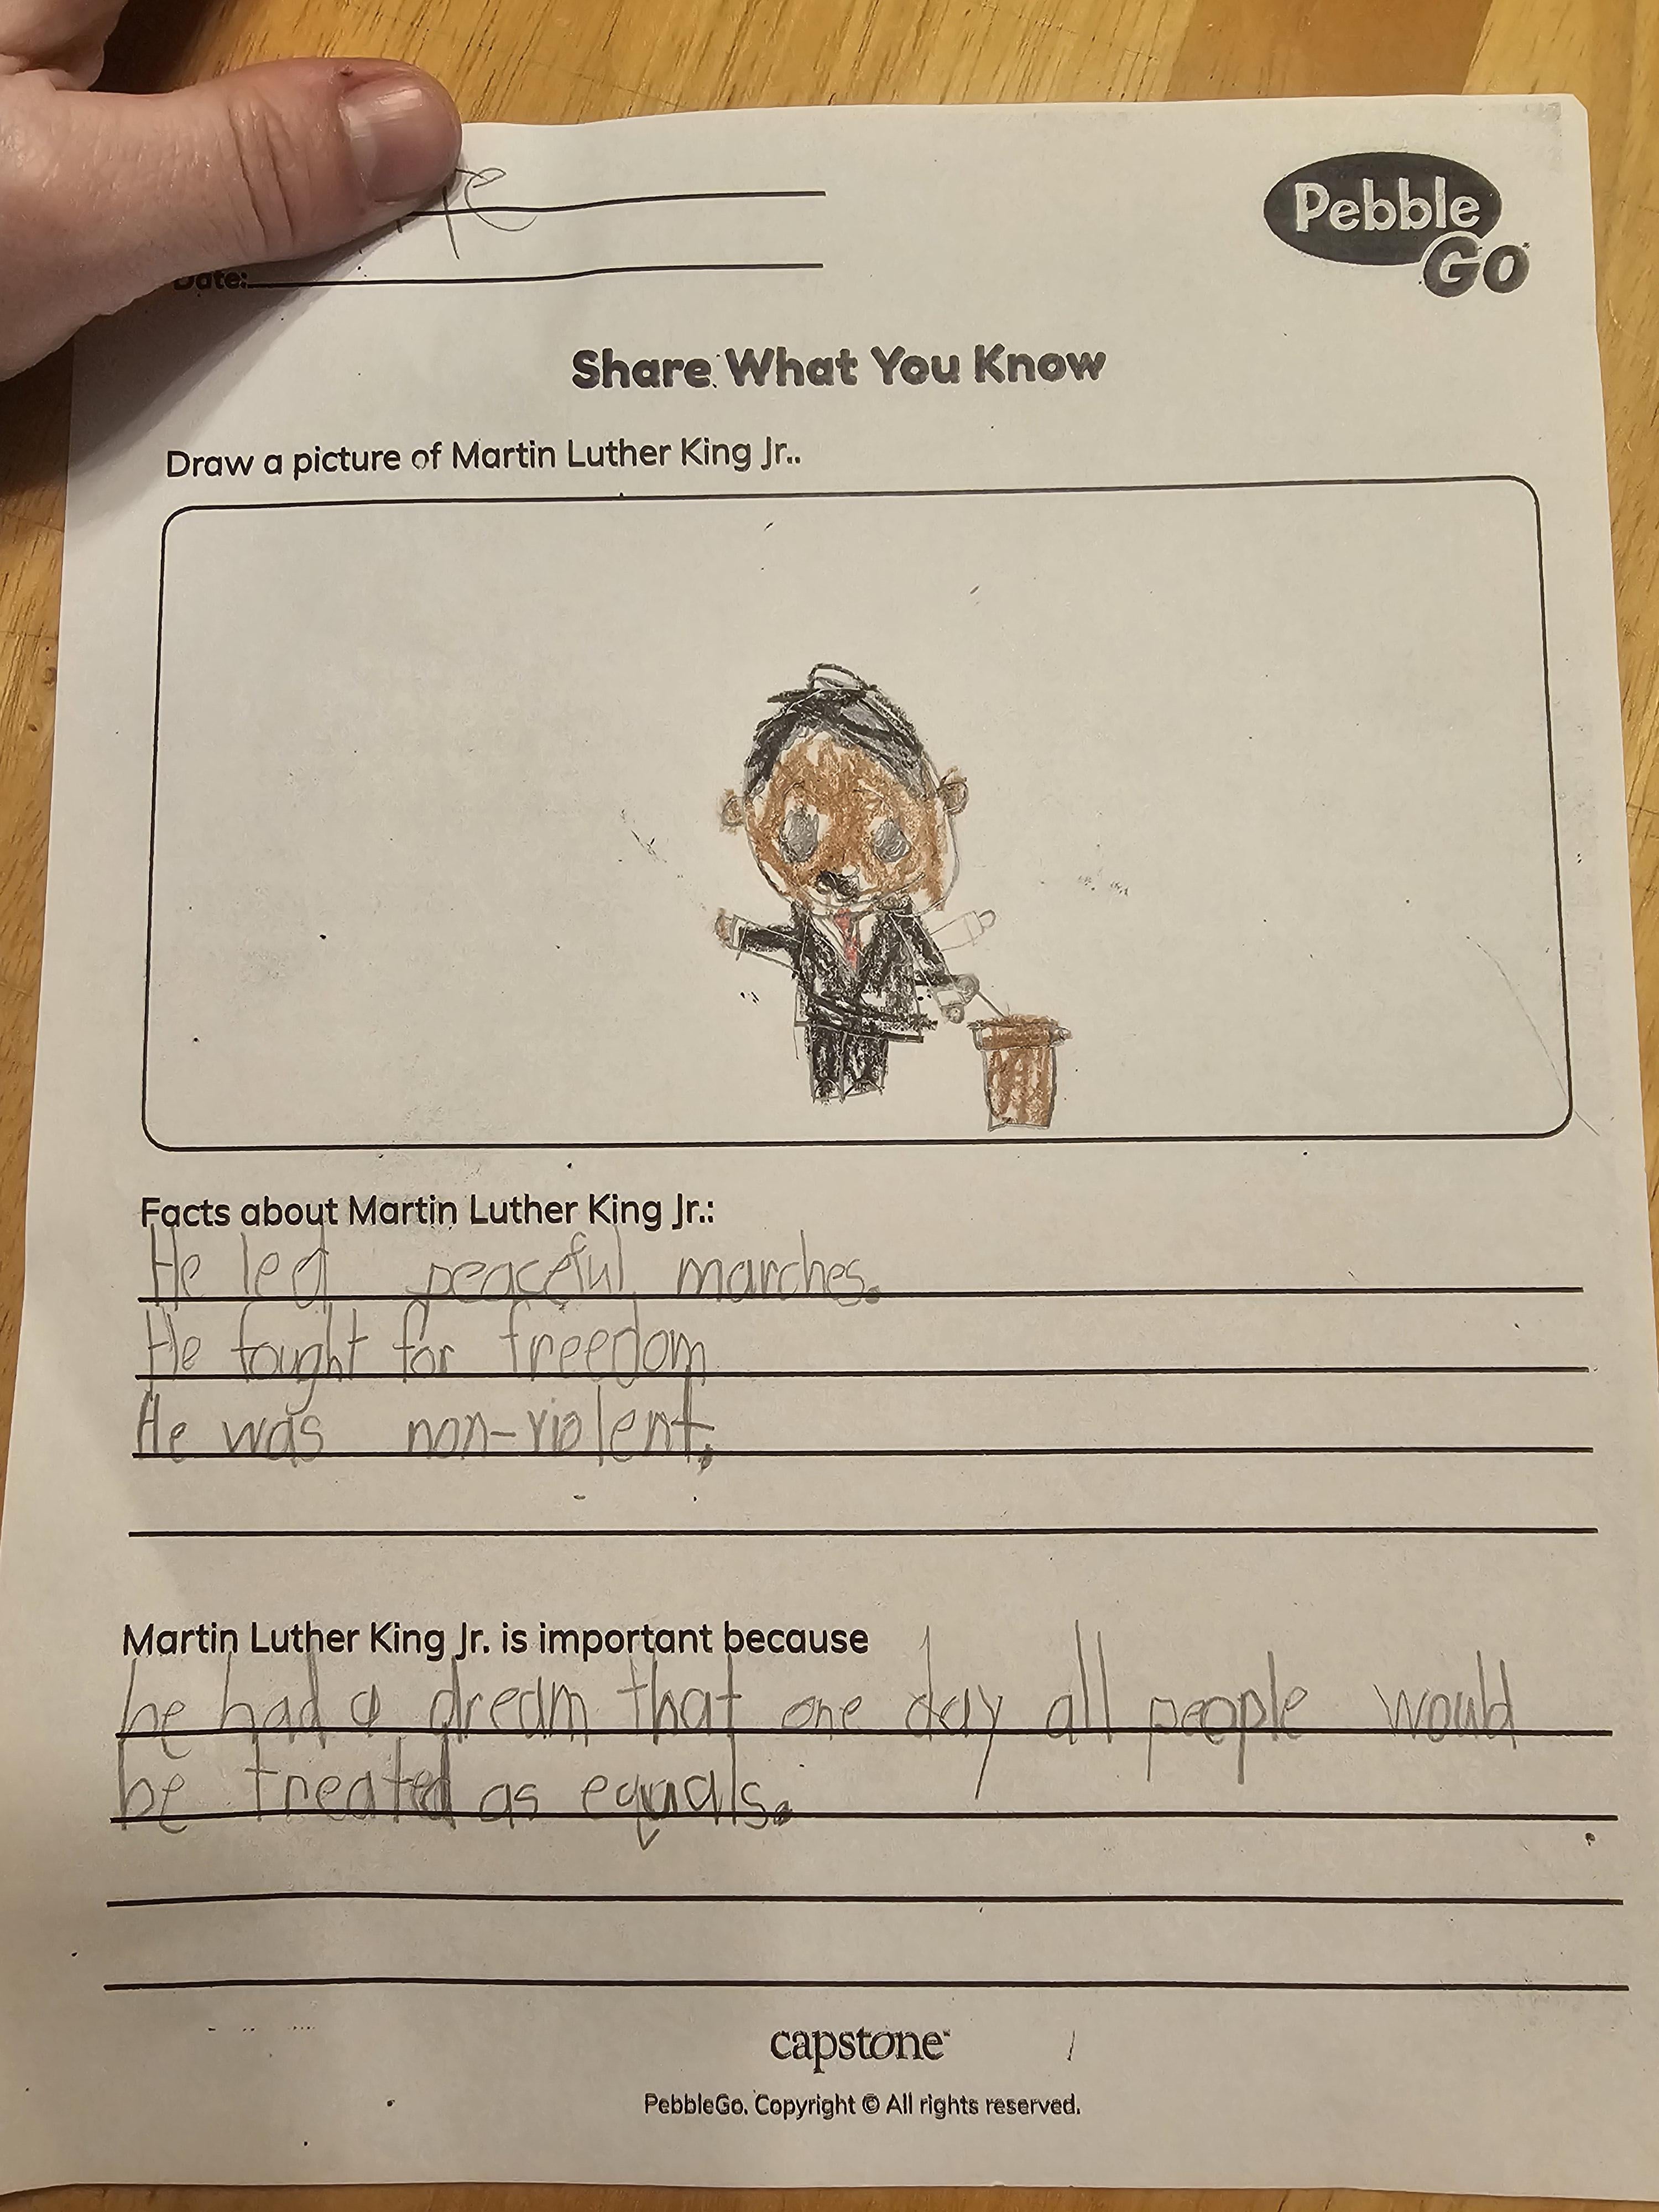 Pebble
Go
Date:
Share What You Know
Draw a picture of Martin Luther King Jr..
Facts about Martin Luther King Jr.:
He led peaceful marches.
He fought for freedom
He was non-violent.
Martin Luther King Jr. is important because
he had a dream that one day all people would
be treated as equals.
capstone
PebbleGo. Copyright © All rights reserved.